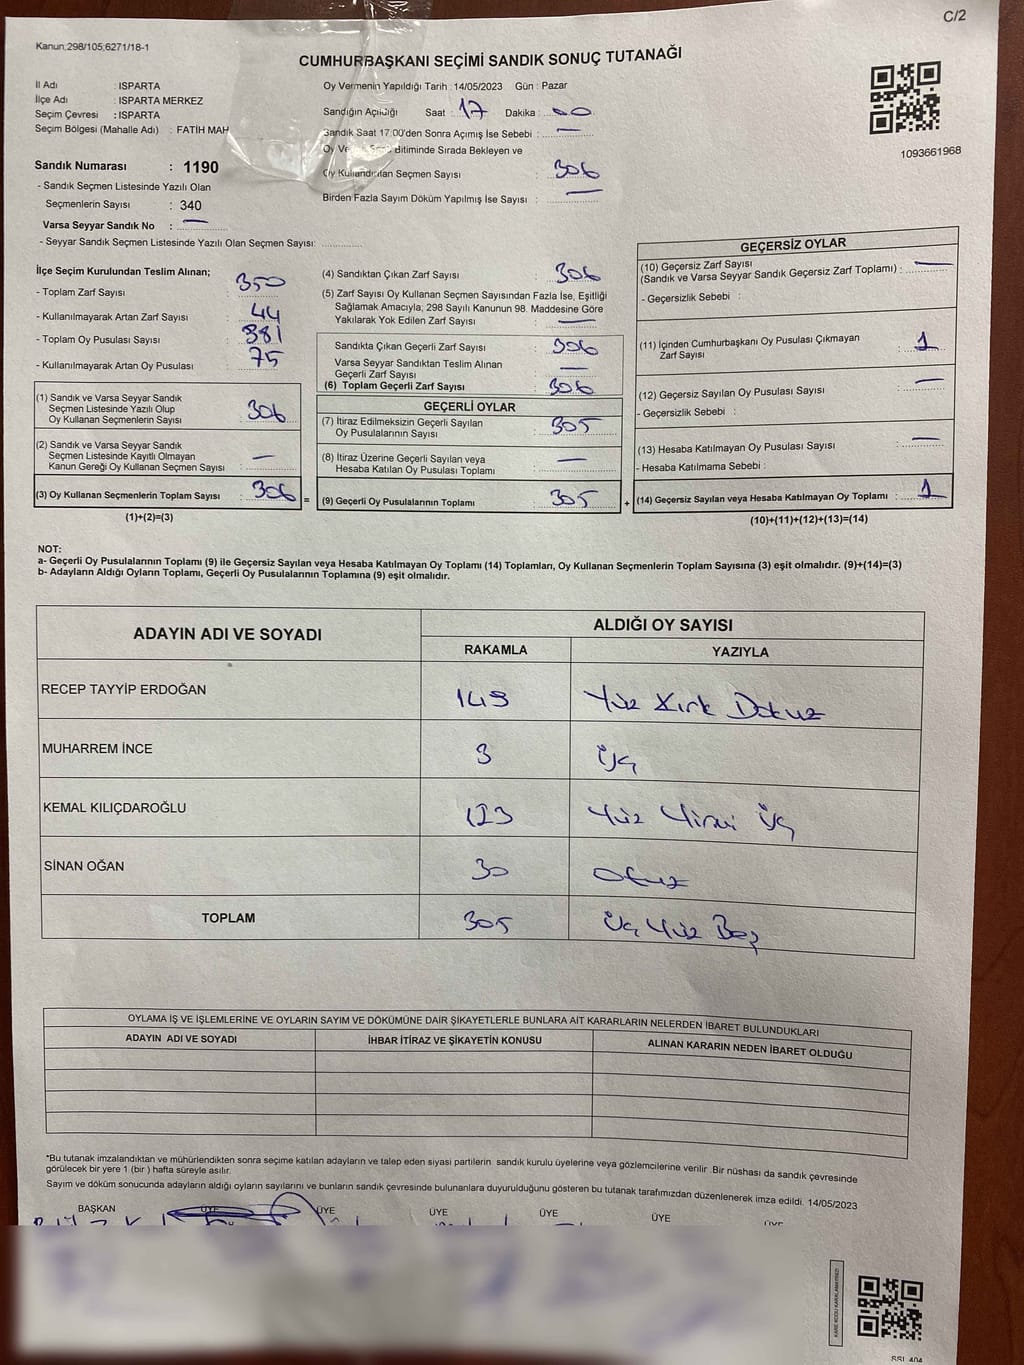 C/2
Kanun;298/105;6271/18-1
CUMHURBAŞKANI SEÇİMİ SANDIK SONUÇ TUTANAĞI
İl Adı : ISPARTA
İlçe Adı : ISPARTA MERKEZ
Seçim Çevresi : ISPARTA
Seçim Bölgesi (Mahalle Adı) : FATİH MAH
Sandık Numarası : 1190
- Sandık Seçmen Listesinde Yazılı Olan
Seçmenlerin Sayısı : 340
Varsa Seyyar Sandık No : —
- Seyyar Sandık Seçmen Listesinde Yazılı Olan Seçmen Sayısı:
Oy Vermenin Yapıldığı Tarih : 14/05/2023 Gün : Pazar
Sandığın Açıldığı Saat : 17 Dakika : 00
Sandık Saat 17:00'den Sonra Açımış İse Sebebi : —
Oy Ve Bitiminde Sırada Bekleyen ve
Oy Kullandırılan Seçmen Sayısı : 306
Birden Fazla Sayım Döküm Yapılmış İse Sayısı : —
1093661968
İlçe Seçim Kurulundan Teslim Alınan;
- Toplam Zarf Sayısı : 350
- Kullanılmayarak Artan Zarf Sayısı : 44
- Toplam Oy Pusulası Sayısı : 381
- Kullanılmayarak Artan Oy Pusulası : 75
(1) Sandık ve Varsa Seyyar Sandık
Seçmen Listesinde Yazılı Olup
Oy Kullanan Seçmenlerin Sayısı : 306
(2) Sandık ve Varsa Seyyar Sandık
Seçmen Listesinde Kayıtlı Olmayan
Kanun Gereği Oy Kullanan Seçmen Sayısı : —
(3) Oy Kullanan Seçmenlerin Toplam Sayısı : 306 =
(1)+(2)=(3)
(4) Sandıktan Çıkan Zarf Sayısı : 306
(5) Zarf Sayısı Oy Kullanan Seçmen Sayısından Fazla İse, Eşitliği
Sağlamak Amacıyla, 298 Sayılı Kanunun 98. Maddesine Göre
Yakılarak Yok Edilen Zarf Sayısı : —
Sandıkta Çıkan Geçerli Zarf Sayısı : 306
Varsa Seyyar Sandıktan Teslim Alınan
Geçerli Zarf Sayısı : —
(6) Toplam Geçerli Zarf Sayısı : 306
GEÇERLİ OYLAR
(7) İtiraz Edilmeksizin Geçerli Sayılan
Oy Pusulalarının Sayısı : 305
(8) İtiraz Üzerine Geçerli Sayılan veya
Hesaba Katılan Oy Pusulası Toplamı : —
(9) Geçerli Oy Pusulalarının Toplamı : 305 +
GEÇERSİZ OYLAR
(10) Geçersiz Zarf Sayısı
(Sandık ve Varsa Seyyar Sandık Geçersiz Zarf Toplamı) : —
- Geçersizlik Sebebi :
(11) İçinden Cumhurbaşkanı Oy Pusulası Çıkmayan
Zarf Sayısı : 1
(12) Geçersiz Sayılan Oy Pusulası Sayısı : —
- Geçersizlik Sebebi :
(13) Hesaba Katılmayan Oy Pusulası Sayısı : —
- Hesaba Katılmama Sebebi :
(14) Geçersiz Sayılan veya Hesaba Katılmayan Oy Toplamı : 1
(10)+(11)+(12)+(13)=(14)
NOT:
a- Geçerli Oy Pusulalarının Toplamı (9) ile Geçersiz Sayılan veya Hesaba Katılmayan Oy Toplamı (14) Toplamları, Oy Kullanan Seçmenlerin Toplam Sayısına (3) eşit olmalıdır. (9)+(14)=(3)
b- Adayların Aldığı Oyların Toplamı, Geçerli Oy Pusulalarının Toplamına (9) eşit olmalıdır.
ADAYIN ADI VE SOYADI ALDIĞI OY SAYISI
RAKAMLA YAZIYLA
RECEP TAYYİP ERDOĞAN 149 Yüz Kırk Dokuz
MUHARREM İNCE 3 Üç
KEMAL KILIÇDAROĞLU 123 Yüz Yirmi Üç
SİNAN OĞAN 30 Otuz
TOPLAM 305 Üç Yüz Beş
OYLAMA İŞ VE İŞLEMLERİNE VE OYLARIN SAYIM VE DÖKÜMÜNE DAİR ŞİKAYETLERLE BUNLARA AİT KARARLARIN NELERDEN İBARET BULUNDUKLARI
ADAYIN ADI VE SOYADI İHBAR İTİRAZ VE ŞİKAYETİN KONUSU ALINAN KARARIN NEDEN İBARET OLDUĞU
*Bu tutanak imzalandıktan ve mühürlendikten sonra seçime katılan adayların ve talep eden siyasi partilerin sandık kurulu üyelerine veya gözlemcilerine verilir .Bir nüshası da sandık çevresinde
görülecek bir yere 1 (bir ) hafta süreyle asılır.
Sayım ve döküm sonucunda adayların aldığı oyların sayılarını ve bunların sandık çevresinde bulunanlara duyurulduğunu gösteren bu tutanak tarafımızdan düzenlenerek imza edildi. 14/05/2023
BAŞKAN ÜYE ÜYE ÜYE ÜYE ÜYE ÜYE